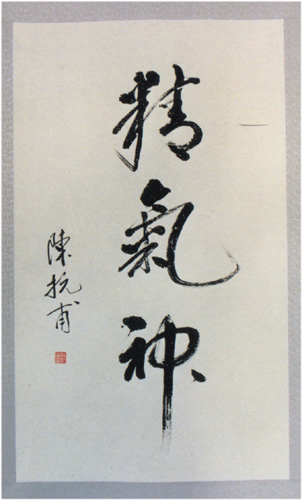 精氣神
陳抗甫